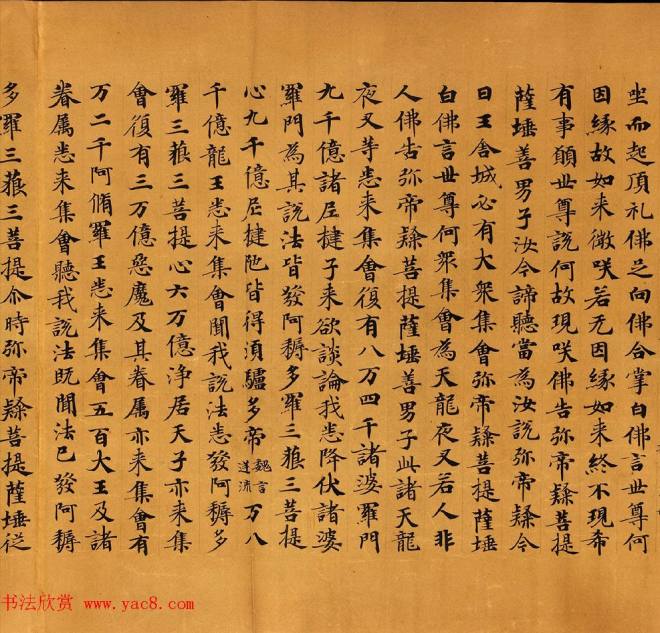 坐而起頂礼佛足向佛合掌白佛言世尊何
因緣故如来微咲若无因緣如来終不現希
有事願世尊說何故現咲佛告弥帝隸菩提
薩埵善男子汝今諦聽當為汝說弥帝隸今
日王舍城必有大衆集會弥帝隸菩提薩埵
白佛言世尊何衆集會為天龍夜叉若人非
人佛告弥帝隸菩提薩埵善男子此諸天龍
夜叉等悉来集會復有八万四千諸婆羅門
九千億諸尼揵子来欲談論我悉降伏諸婆
羅門為其說法皆發阿耨多羅三藐三菩提
心九千億尼揵陁皆得須驢多帝魏言逆流万八
千億龍王悉来集會聞我說法悉發阿耨多
羅三藐三菩提心六万億淨居天子亦来集
會復有三万億惡魔及其眷属亦来集會有
万二千阿脩羅王悉来集會五百大王及諸
眷属悉来集會聽我說法既聞法已發阿耨
多羅三藐三菩提尒時弥帝隸菩提薩埵從
书法欣赏 www.yac8.com